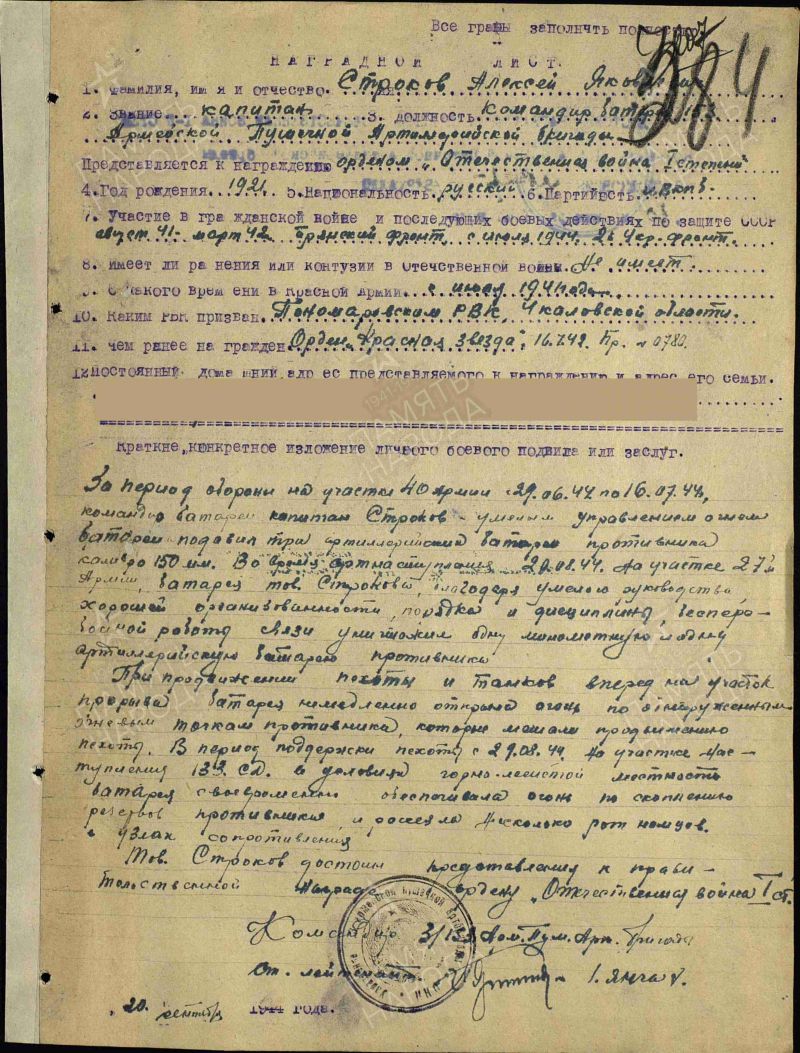 Все графы заполнчть по
284
НАГРАДНОЙ ЛИСТ.
1. Фамилия, имя и отчество. Строков Алексей
2. Звание. капитан 3. должность. Командир батареи
Армейской Пушечной Артиллерийской бригады
Представляется к награждению орденом „Отечественная война I степени"
4. Год рождения. 1921. 5. Национальность. русский 6. Партийрсть. чл. ВКПб.
7. Участие в гражданской войне и последующих боевых действиях по защите СССР
август 41- март 42 Брянский фронт, с июля 1944. 2й Укр. фронт.
8. имеет ли ранения или контузии в Отечственной войне. Не имеет
9. С какого времени в Красной Армии. с июля 1941 года
10. Каким РВК призван. Пономаревским РВК, Чкаловской области.
11. чем ранее награжден Орден „Красная звезда", 16.7.42. Пр. № 0780.
12 постоянный домашний адрес представляемого к награждению и адрес его семьи.
Краткне, конкретное изложение личвого боевого подвига или заслуг.
За период обороны на участке 40 Армии с 29.06.44 по 16.07.44,
командир батареи капитан Строков - умелым управлением огнем
батареи подавил три артиллерийские батареи противника
калибра 150 мм. Во время артнаступления 20.08.44. На участке 27й
Армии, батарея тов. Строкова, благодаря умелого руководства,
хорошей организованности, порядка и дисциплины, беспере-
бойной работы связи уничтожила одну минометную и одну
артиллерийскую батарею противника
При продвижении пехоты и танков вперед на участок
прорыва батарея немедленно открыла огонь по обнаруженным
огневым точкам противника, которые мешали продвижению
пехоты. В период поддержки пехоты с 29.08.44. На участке нас-
тупления 133 СД. в условиях горно-лесистой местности
батарея своевременно обеспечивала огонь по скоплению
резервов противника, и рассеяла несколько рот немцев.
в узлах сопротивления
Тов. Строков достоин представления к прави-
тельственной награде ордену „Отечественная война I ст."
Командир 3/153 Арм. Пуш. Арт. бригады
Ст. лейтенант
20. сентября 1944 года.